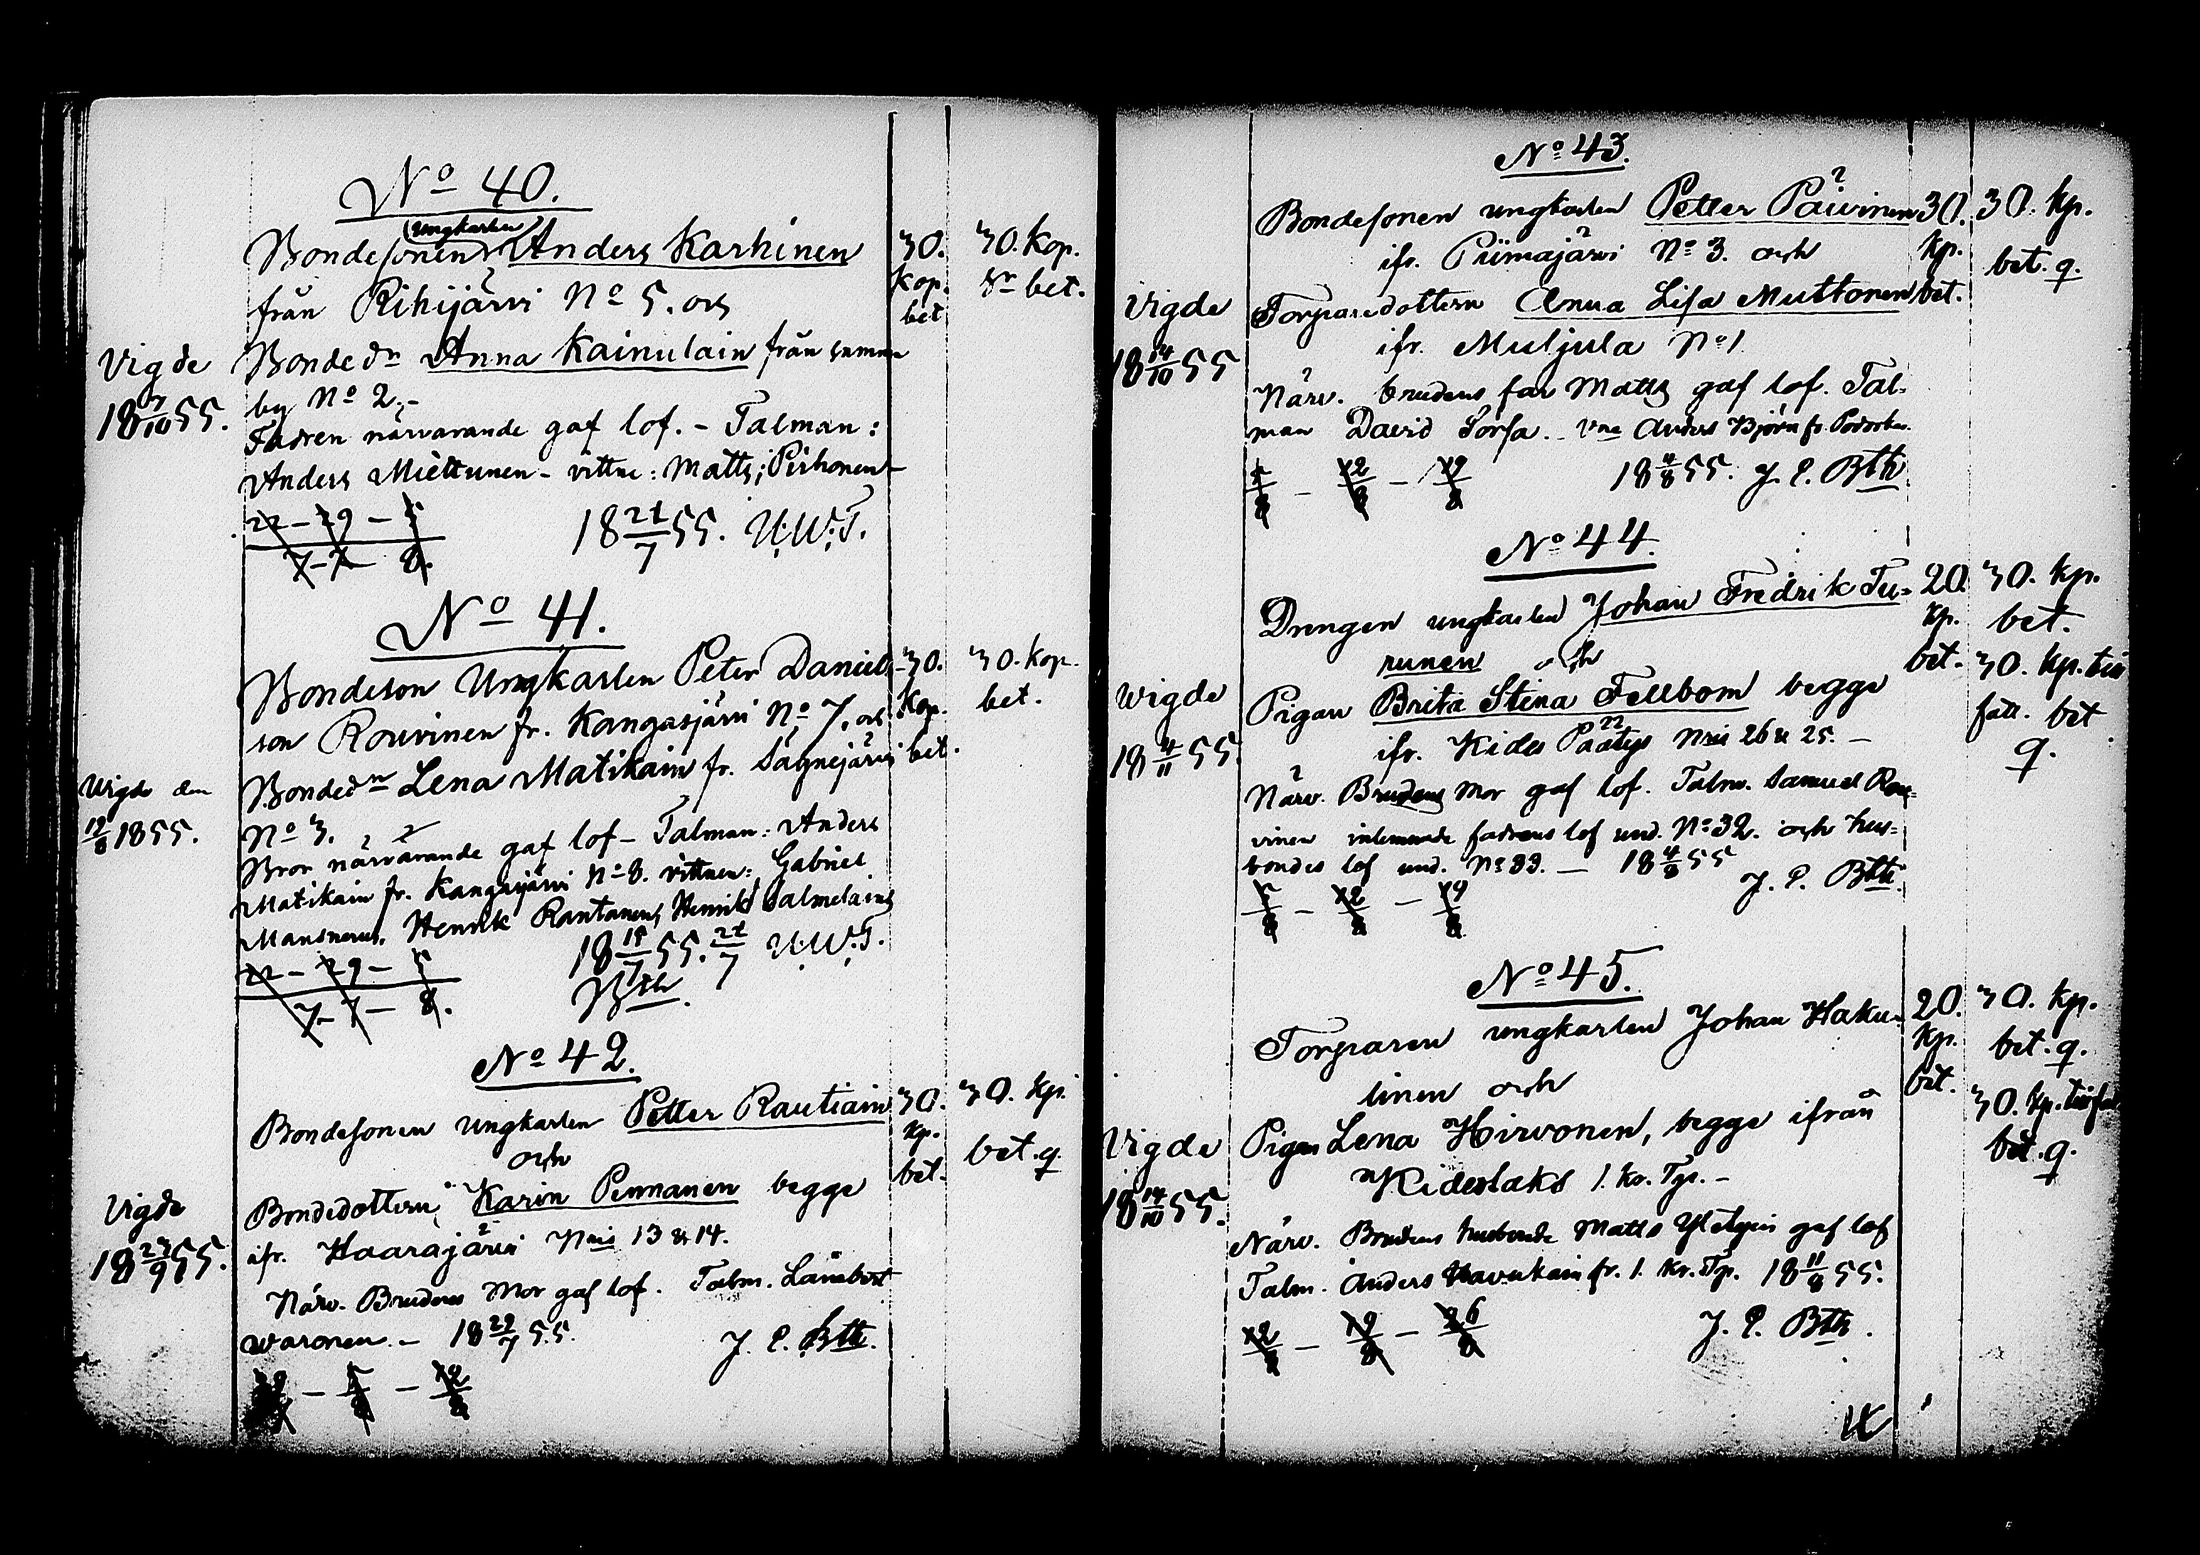 No 40.
Bondesonen Ungkarlen Anders Karhinen
från Rihijärvi No 5. och
Bonde dn Anna Kainulain från samma
by No 2,-
Fadren närvarande gaf lof. - Talman:
Anders Miettunen - vittne: Matts Pirhonen
22 - 29 - 5
7 - 7 - 8.
18 21/7 55. U.W.T.
Vigde
18 7/10 55.
30. Kop. bet
30. Kop.
Sr bet.
No 41.
Bondeson Ungkarlen Peter Daniels
son Rouvinen fr. Kangasjärvi No 7. och
Bondedn Lena Matikain fr. Sägnejärvi
No 3.
Bror närvarande gaf lof - Talman: Anders
Matikain fr. Kangasjärvi No 8. vittnen: Gabriel
Mansnerus, Henrik Rantanen, Henrik Salmelains
22 - 29 - 5
7 - 7 - 8.
18 15/7 55. 21/7 U.W.T.
Bth.
Vigde den
19/8 1855.
30. Kop. bet.
30. Kop.
bet.
No 42.
Bondesonen ungkarlen Petter Rautiain
och
Bondedottern Karin Pennanen begge
ifr. Haarajärvi Nris 13 & 14.
Närv. Brudens Mor gaf lof. Talm. Lambert
Waronen. - 18 29/7 55.
J. P. Bth.
- 5/8 - 12/8
Vigde
18 23/9 55.
30. kp. bet.
30. kp.
bet. q.
No 43.
Bondesonen ungkarlen Petter Päivinen
ifr. Piimajärvi No 3. och
Torparedottern Anna Lisa Muttonen
ifr. Muljula No 1.
Närv. brudens far Matts gaf lof. Tal-
man David Sorsa. - Vne Anders Björn fr.
5/8 - 12/8 - 19/8
18 4/8 55. J. P. Bth.
Vigde
18 14/10 55
30. kp. bet.
30. kp.
bet. q.
No 44.
Drengen ungkarlen Johan Fredrik Tu-
runen och
Pigan Brita Stina Fellbom begge
ifr. Kides Paatys Nris 26 & 25. -
Närv. Brudens Mor gaf lof. Talm. Samuel Rou-
vinen inlemnade fadrens lof und. No 32. och hus-
bondes lof und. No 33. - 18 4/8 55
J. P. Bth.
5/8 - 12/8 - 19/8
Wigde
18 4/11 55.
20. kp. bet.
30. kp.
bet.
30. kp. till
fatt. bet
q.
No 45.
Torparen ungkarlen Johan Haku-
linen och
Pigan Lena Hirvonen, begge ifrån
Kideslaks 1. Kr. Tp. -
Närv. Brudens husbonde Matts gaf lof
Talm. Anders Havukain fr. 1. Kr. Tp. 18 11/8 55.
J. P. Bth.
12/8 - 19/8 - 26/8
Vigde
18 14/10 55.
20. kp. bet.
30. kp.
bet. q.
30. kp. till fatt
bet. q.